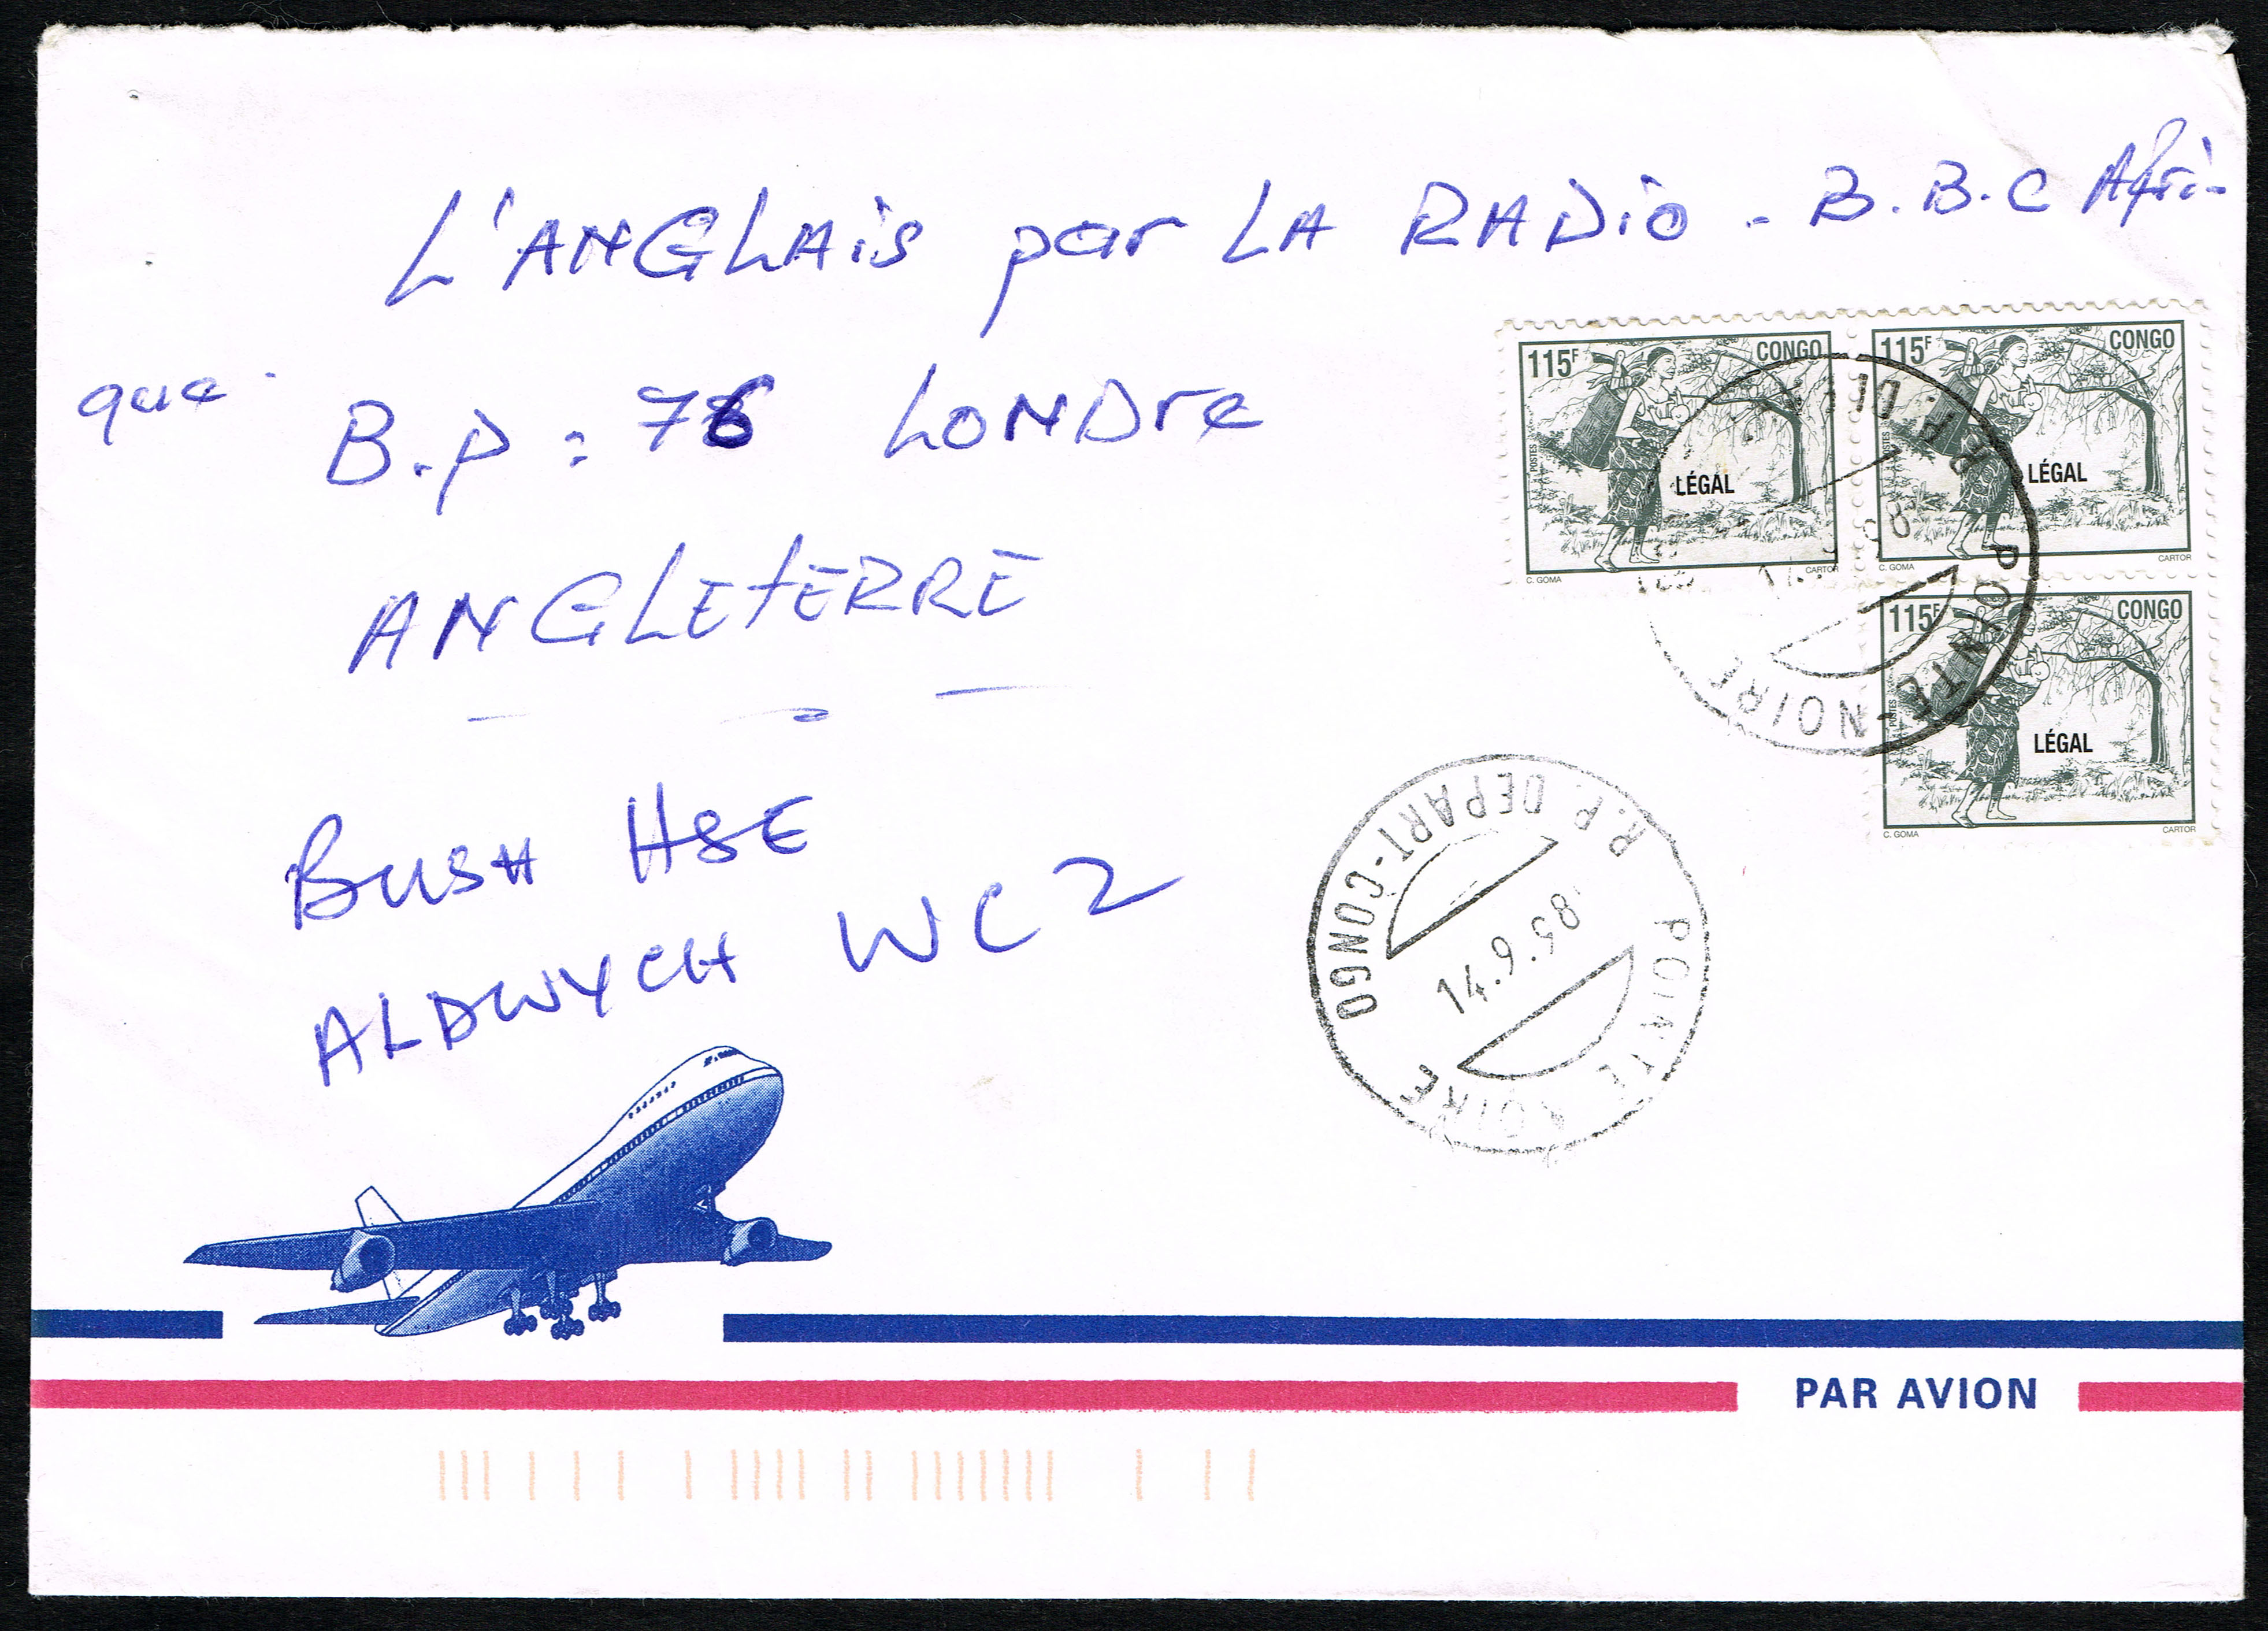 L'ANGLAiS par LA RADiO - B.B.C Afri-
que.
B.P : 76 LONDre
ANGLEtERRE
BUSH HSE
ALDWYCH WC2
115F CONGO
POSTES
LÉGAL
C. GOMA CARTOR
115F CONGO
POSTES
LÉGAL
C. GOMA CARTOR
115F CONGO
POSTES
LÉGAL
C. GOMA CARTOR
R.P. POINTE-NOIRE
R.P. DEPART-CONGO
14.9.98
POINTE NOIRE
PAR AVION